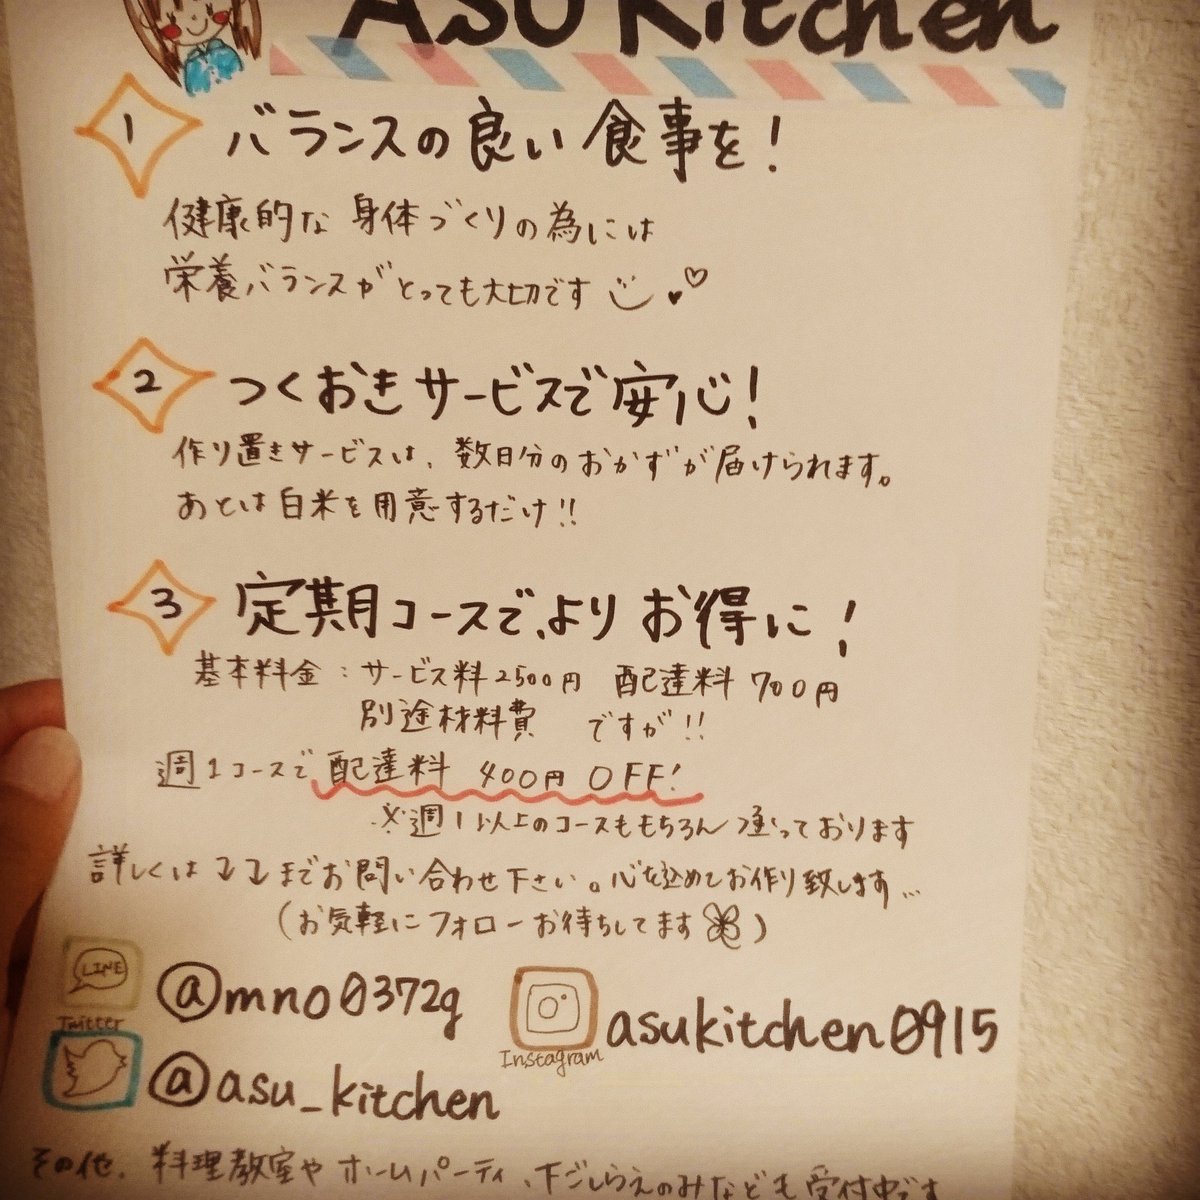 ASU Kitchen
1 バランスの良い食事を!
健康的な身体づくりの為には
栄養バランスがとっても大切です
2 つくおきサービスで安心!
作り置きサービスは、数日分のおかずが届けられます。
あとは白米を用意するだけ!!
3 定期コースで、よりお得に!
基本料金:サービス料2500円 配達料 700円
別途材料費 ですが!!
週1コースで 配達料 400円 OFF!
※週1以上のコースももちろん承っております
詳しくはココまでお問い合わせ下さい。心を込めてお作り致します…
(お気軽にフォローお待ちしてます)
LINE @mno0372g
Instagram asukitchen0915
Twitter @asu_kitchen
その他、料理教室やホームパーティ、下ごしらえのみなども受付中です